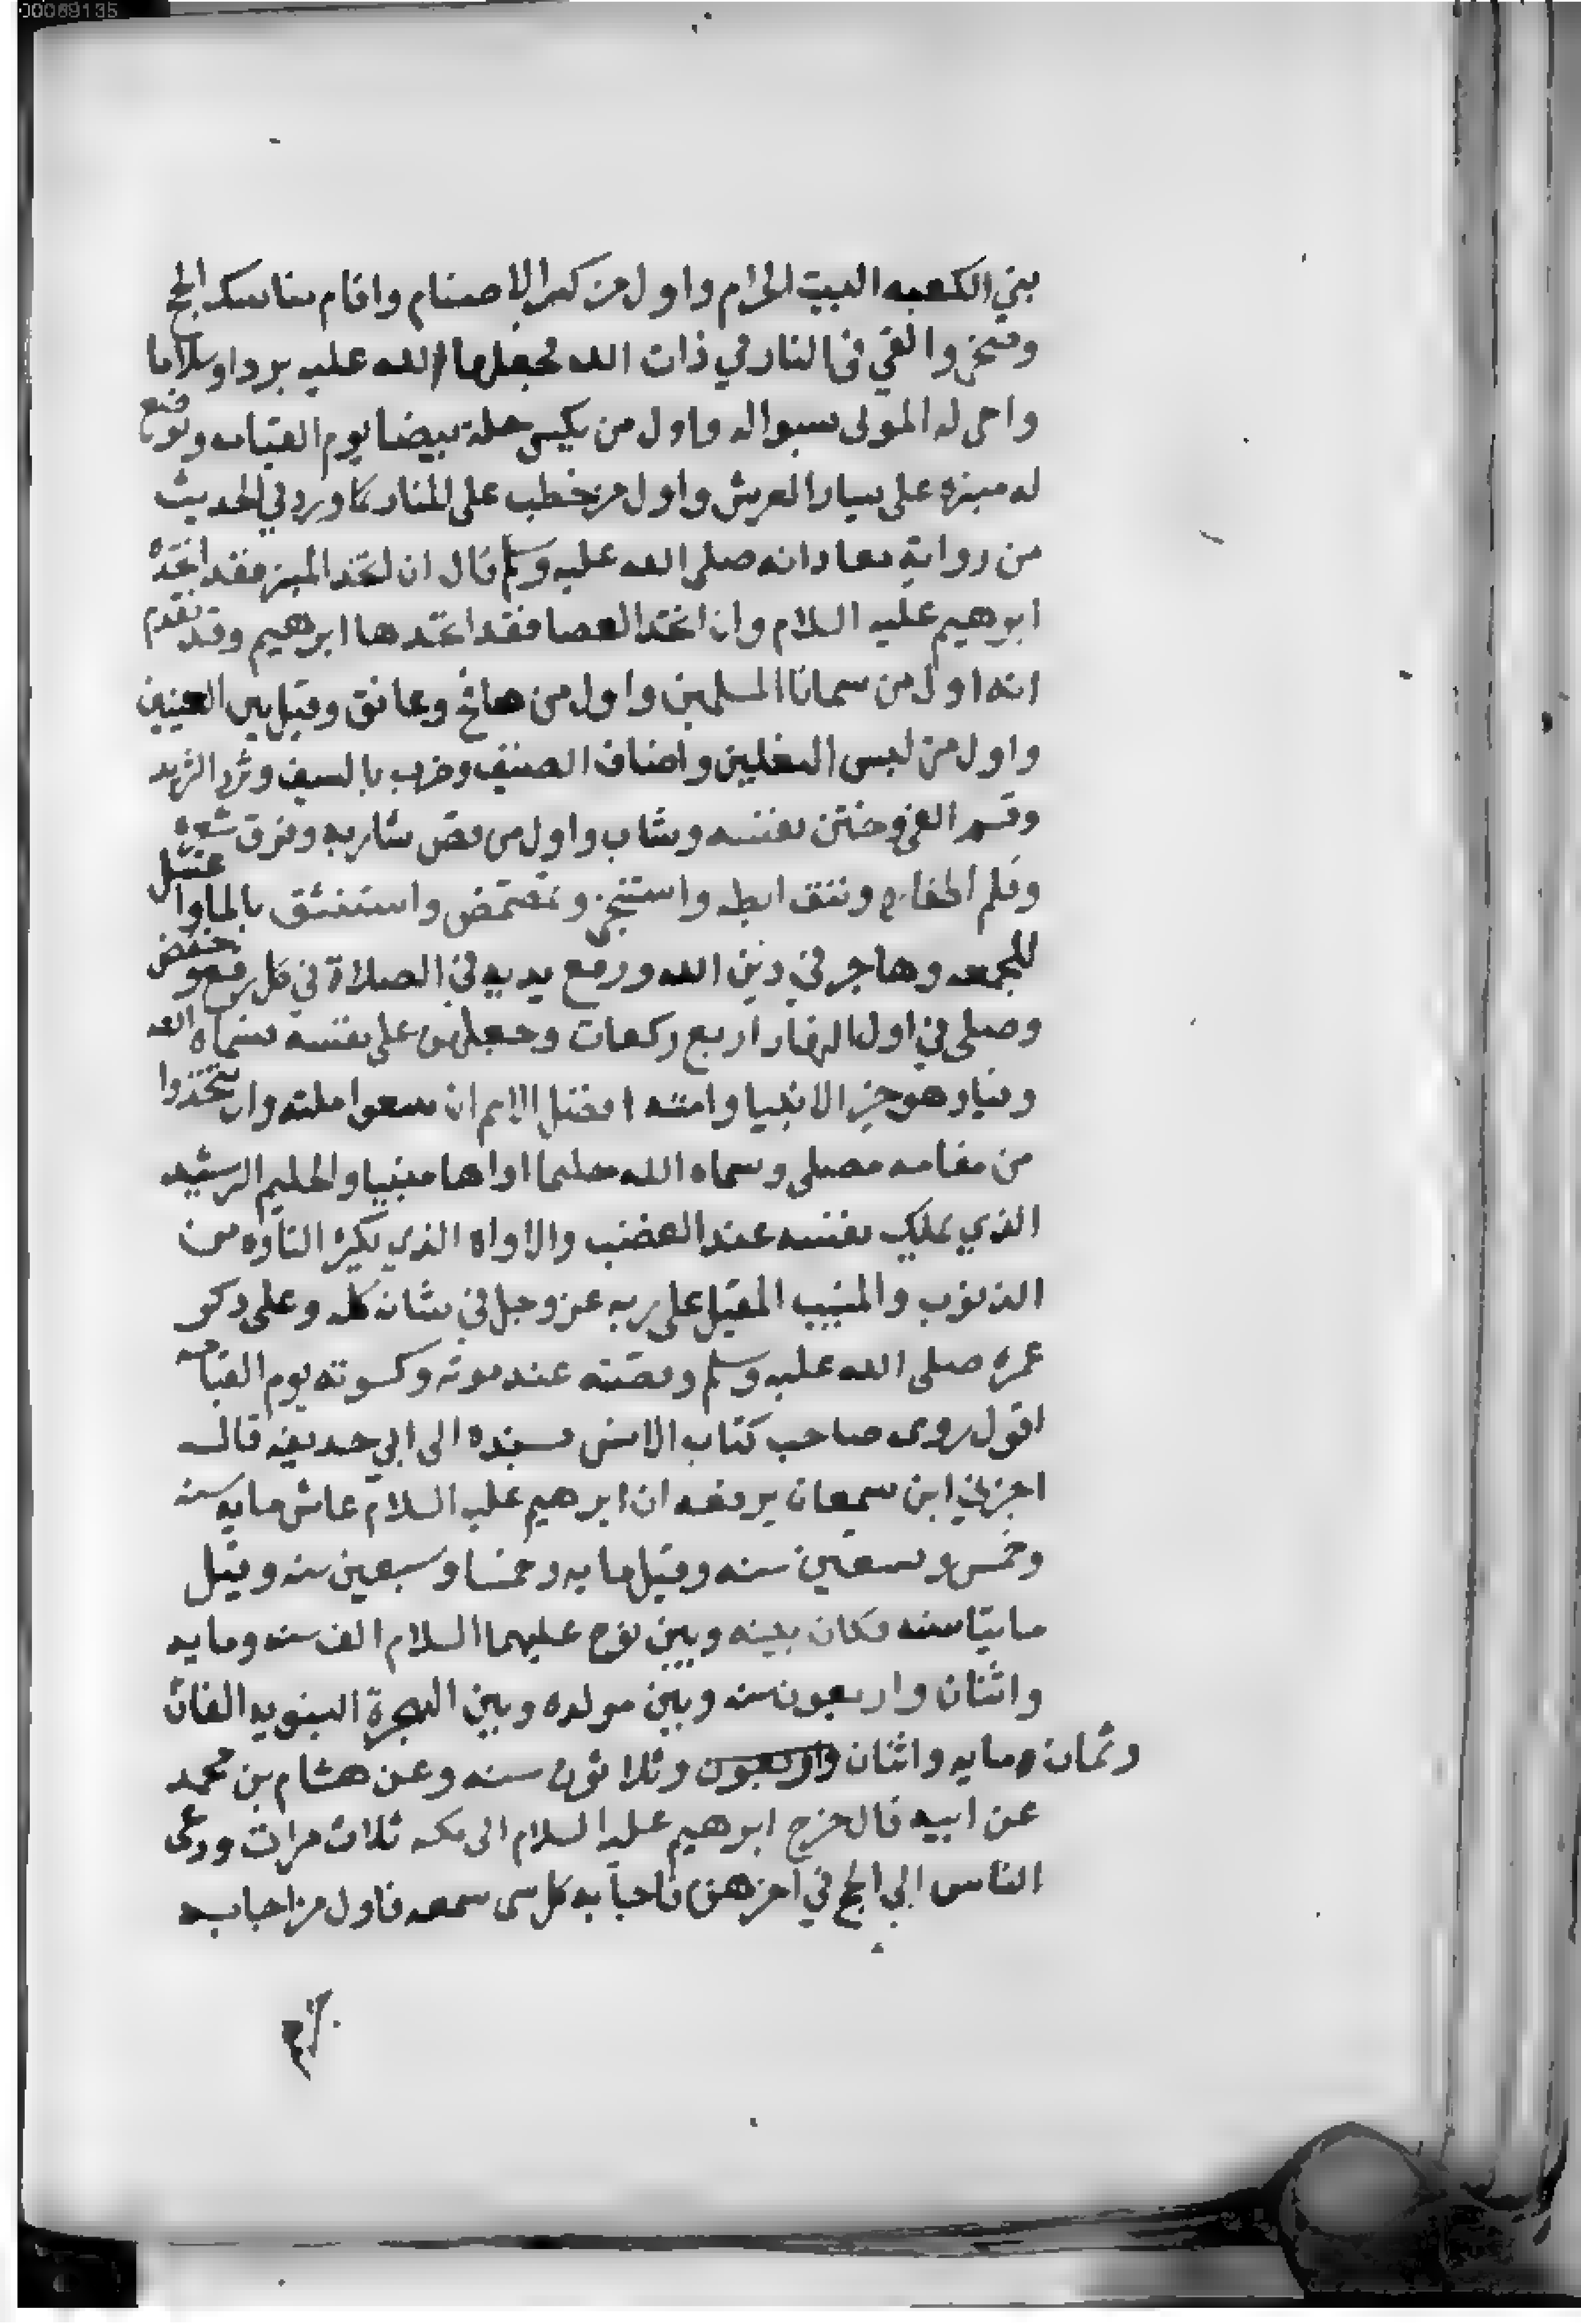 00069135
بني الكعبه البيت الحرام واول من كسر الاصنام واقام مناسك الحج
وضحى والقي في النار في ذات الله فجعلها الله عليه بردا وسلاما
واحى له الموتى بسواله واول من يكسى حلة بيضا يوم القيامه وتوضع
له منبره على يسار العرش واول من خطب على المنابر كما ورد في الحديث
من رواية معاد انه صلى الله عليه وسلم قال ان اتخد المنبر فقد اتخده
ابرهيم عليه السلام وان اتخد العصا فقد اتخدها ابرهيم وقد تقدم
انه اول من سمانا المسلمين واول من صافح وعانق وقبل بين العينين
واول من لبس النعلين واضاف الضيف وضرب بالسيف وثرد الثريد
وقسم الفي وختن نفسه وشاب واول من قص شاربه وفرق شعره
وقلم اظفاره ونتف ابطه واستنجى وتمضمض واستنشق بالما واغتسل
للجمعه وهاجر في دين الله ورفع يديه في الصلاة في كل رفع وخفض
وصلى في اول النهار اربع ركعات وجعلهن على نفسه فسماه الله
وفيا وهو خير الانبيا وامته افضل الامم ان يتبعوا ملته وان يتخذوا
من مقامه مصلى وسماه الله حليما اواها منيبا والحليم الرشيد
الذي يملك نفسه عند الغضب والاواه الذي يكثر التاوه من
الذنوب والمنيب المقبل على ربه عز وجل في شانه كله وعلى دكر
عمره صلى الله عليه وسلم وقصته عند موته وكسوته يوم القيامه
اقول روى صاحب كتاب الانس بسنده الى ابي حديفه قال
اخبرني ابن سمعان يرفعه ان ابرهيم عليه السلام عاش مايه سنه
وخمس وتسعين سنه وقيل مايه وخمسا وسبعين سنه وقيل
مايتا سنه فكان بينه وبين نوح عليهما السلام الف سنه ومايه
واثنان واربعون سنه وبين مولده وبين الهجرة النبويه الفان
وثمان ومايه واثنان واربعون وثلاثون سنه وعن هشام بن محمد
عن ابيه قال خرج ابرهيم عليه السلام الى مكه ثلاث مرات ودعى
الناس الي الحج في اخرهن فاجابه كل شى سمعه فاول من اجابه